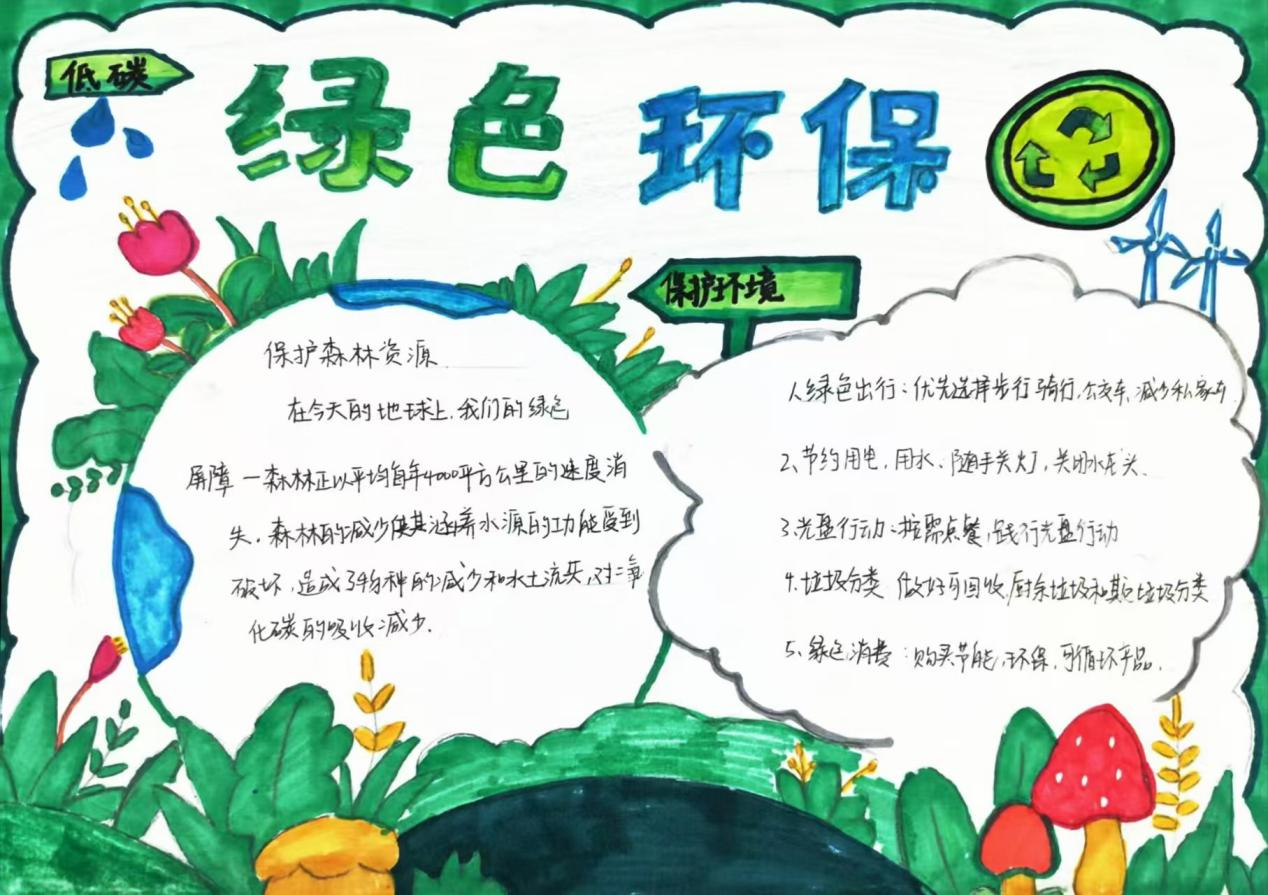 低碳
绿色环保
保护环境
保护森林资源
在今天的地球上,我们的绿色
屏障一森林正以平均每年4000平方公里的速度消
失,森林的减少使其涵养水源的功能受到
破坏,造成了物种的减少和水土流失,对二氧
化碳的吸收减少.
1、绿色出行:优先选择步行骑行,公交车,减少私家车.
2、节约用电,用水、随手关灯,关闭水龙头、
3.光盘行动:按需点餐,践行光盘行动
4.垃圾分类 做好可回收,厨余垃圾和其它垃圾分类
5、绿色消费:购买节能,环保,可循环产品.